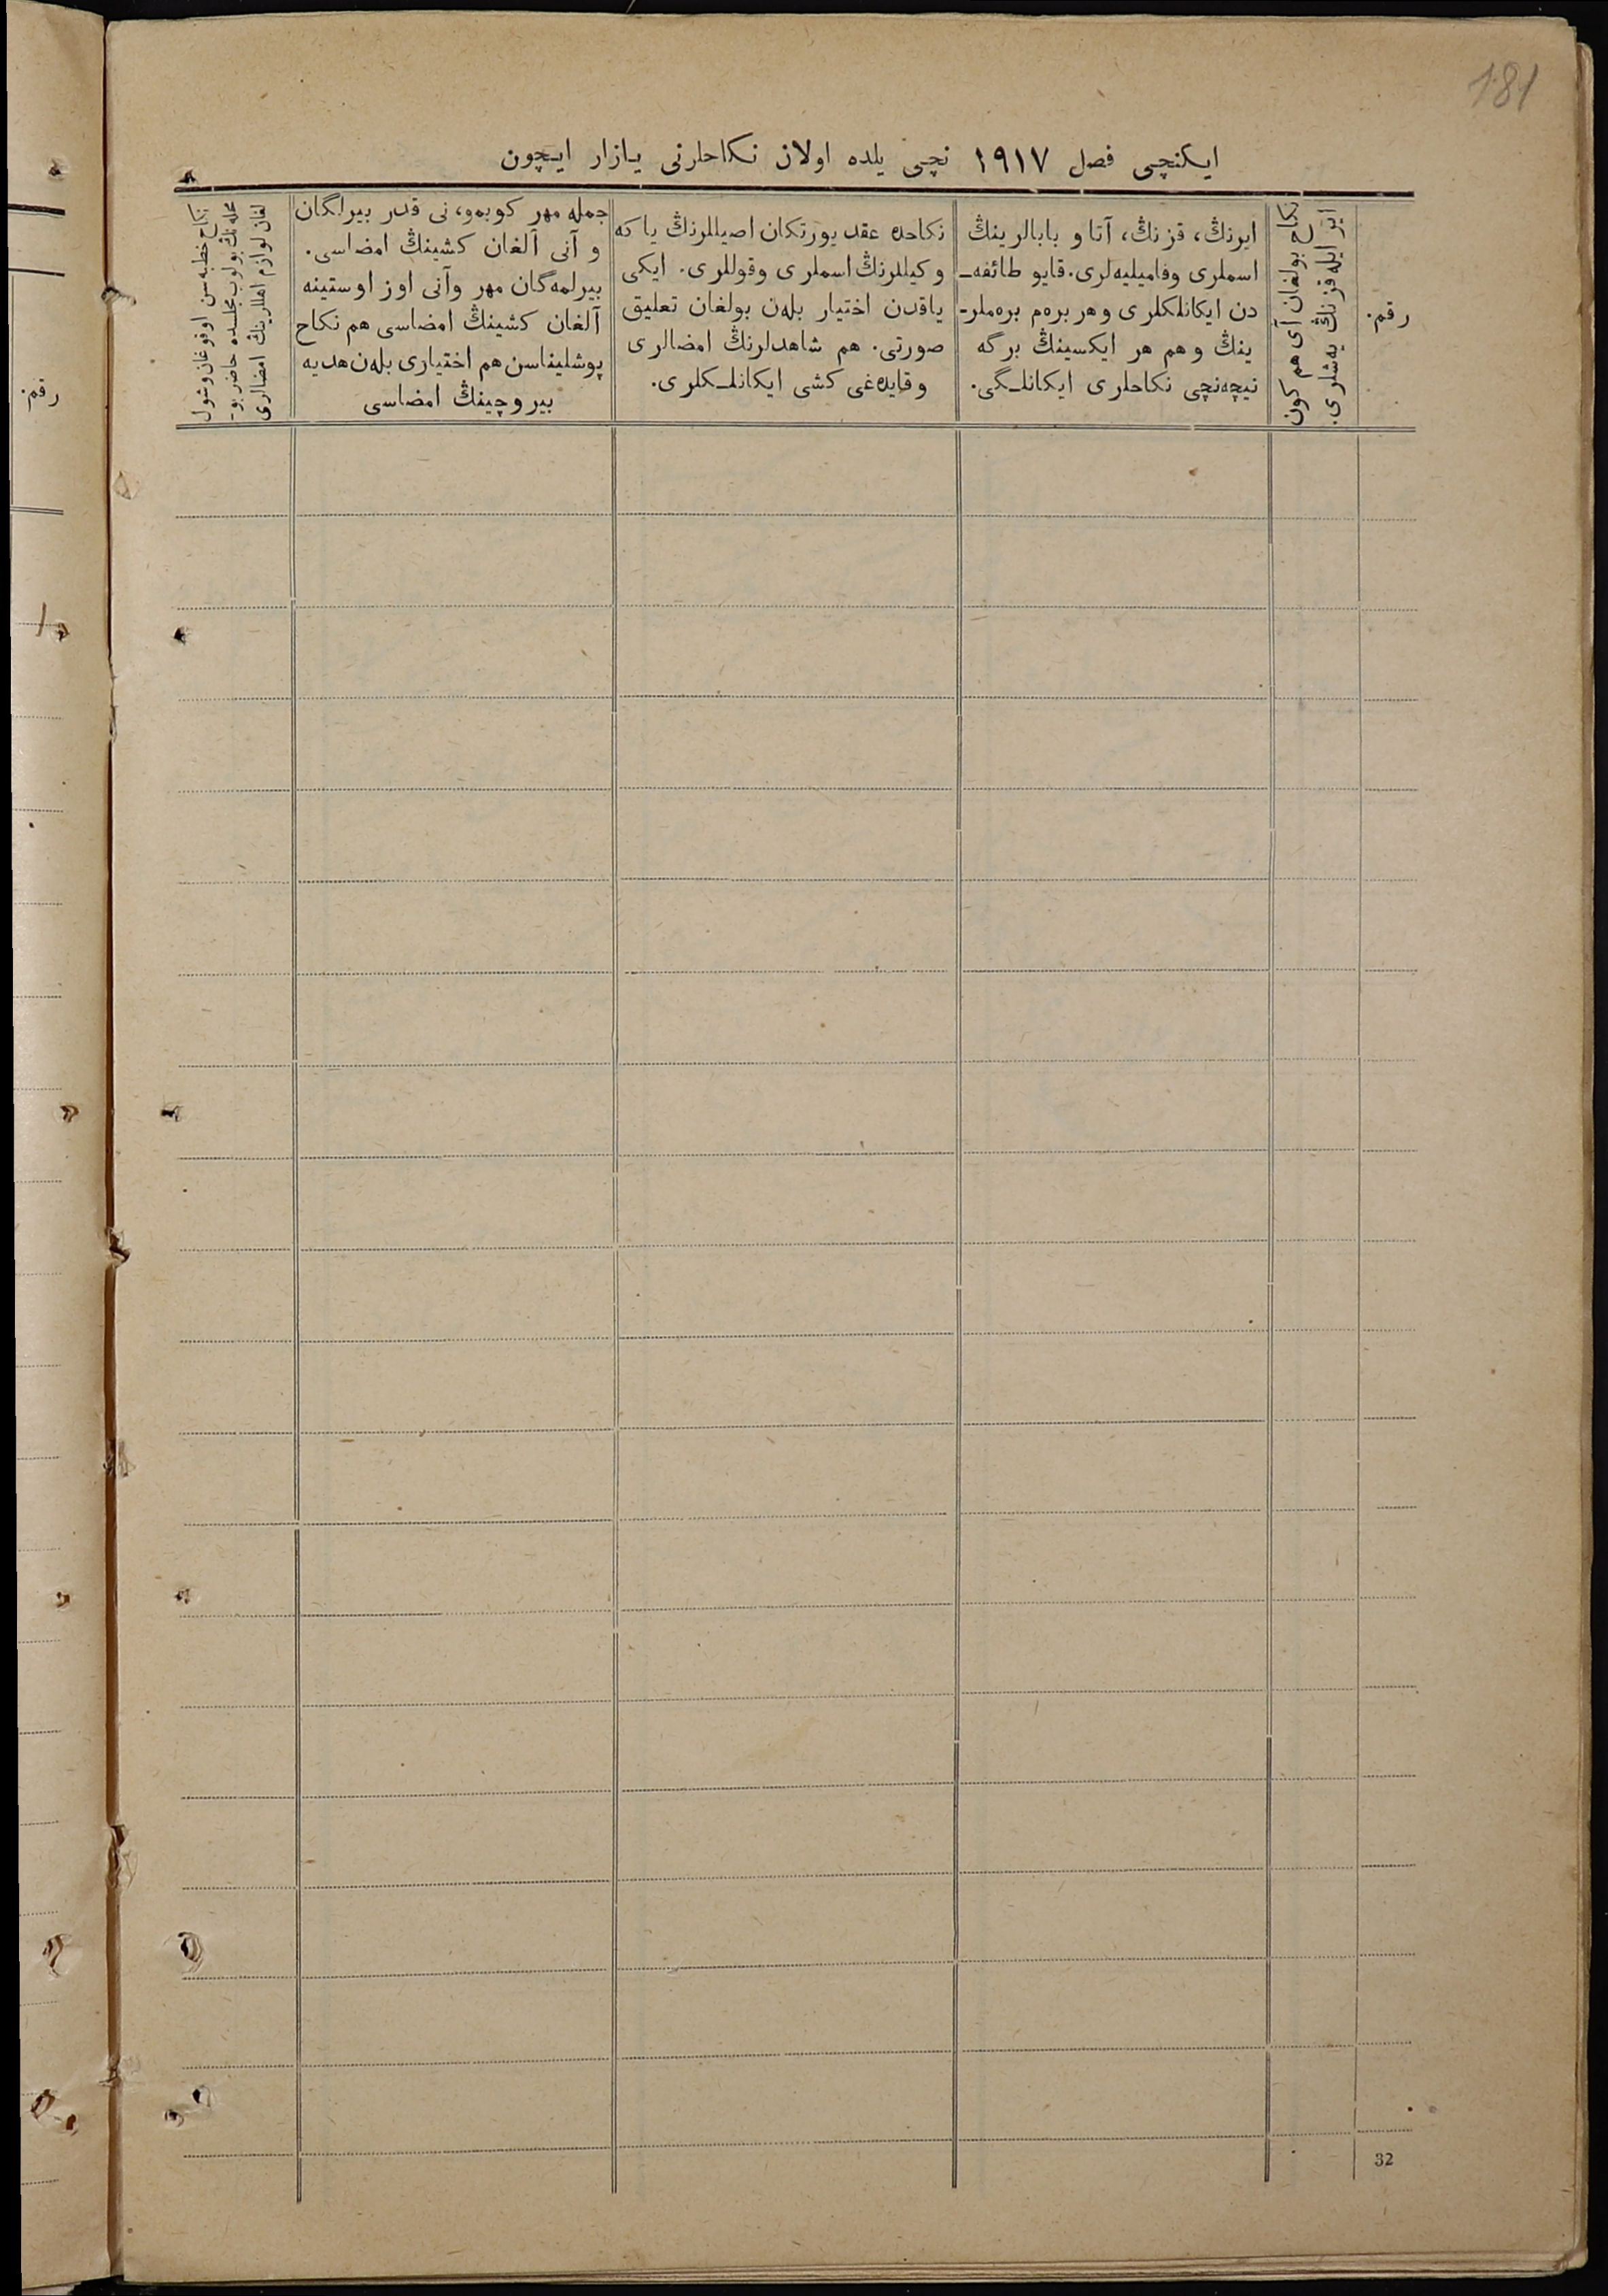 181
ایکنچی فصل ۱۹۱۷ نچی یلده اولان نکاحلرنی یازار ایچون
رقم.
نکاح بولغان آی هم کون
ایر ایله قزنڭ یەشلری.
ایرنڭ، قزنڭ، آتا و بابالرینڭ
اسملری وفامیلیەلری. قایو طائفه‌ـ
دن ایکانلکلری و هر برەم برەملرـ
ینڭ و هم هر ایکسینڭ برگه
نیچەنچی نکاحلری ایکانلـگی.
نکاحده عقد یورتکان اصیللرنڭ یا که
وکیللرنڭ اسملری وقوللری. ایکی
یاقدن اختیار بلەن بولغان تعلیق
صورتی. هم شاهدلرنڭ امضالری
وقایدەغی کشی ایکانلـکلری.
جمله مهر کوبمو، نی قدر بیرلگان
و آنی آلغان کشینڭ امضاسی.
بیرلمەگان مهر وآنی اوز اوستینه
آلغان کشینڭ امضاسی هم نکاح
پوشلیناسن هم اختیاری بلەن هدیه
بیروچینڭ امضاسی
نکاح خطبه‌سن اوقوغان وشول
محلەنڭ بولوب مجلسده حاضر بوـ
لغان لوازم اهللرینڭ امضالری
رقم.
32